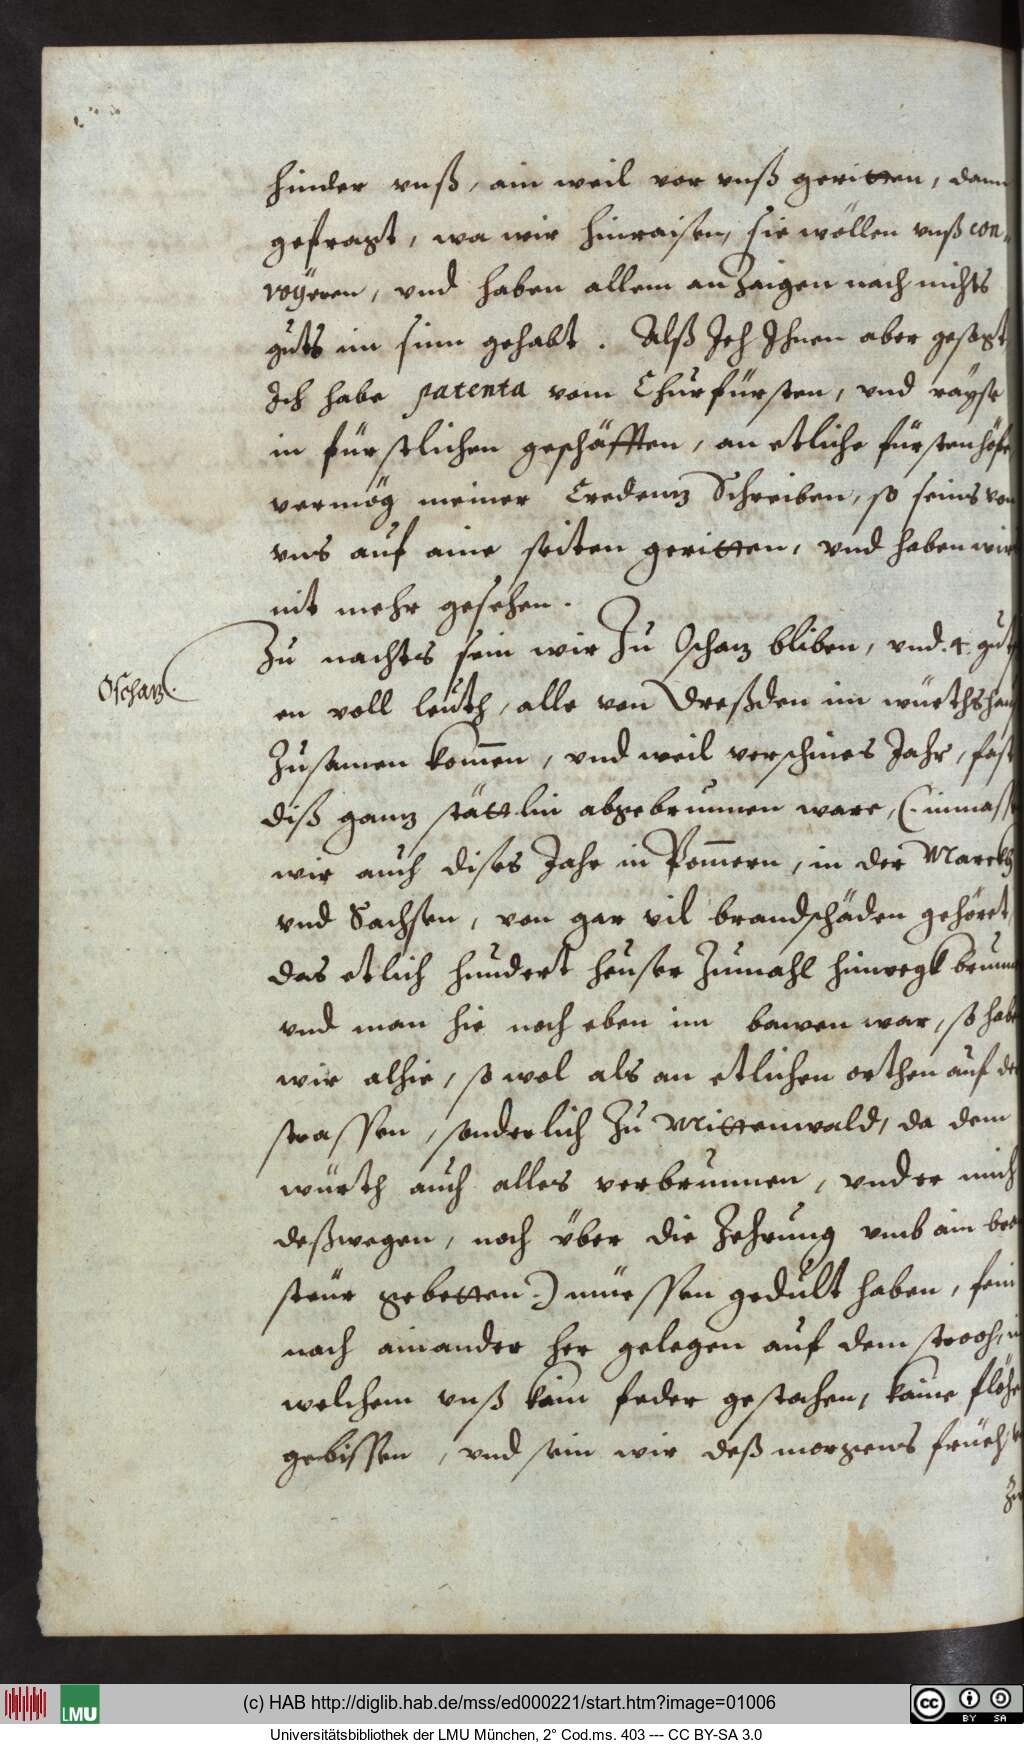 hinder vnß, ain weil vor vnß geritten, dann
gefragt, wa wir hinraisen, sie wöllen vnß con-
voÿeren, vnd haben allem anzaigen nach nichts
guts im sinn gehabt. Alß Ich Ihnen aber gesagt
Ich habe patenta vom Churfürsten, vnd raÿse
in fürstlichen geschäfften, an etliche fürstenhöfe
vermög meiner Credentz Schreiben, so seins von
vns auf aine seiten geritten, vnd haben wir
nit mehr gesehen.
Oschatz.
Zu nachts sein wir Zu Oschatz bliben, vnd .4. gut
en voll leuth, alle von Dreßden im würthshauß
Zusamen kom̄en, vnd weil verschines Jahr, fast
diß gantz stättlin abgebrunnen ware, (. inmassen
wir auch dises Jahr in Pom̄ern, in der Marckh
vnd Sachsen, von gar vil brandschäden gehöret,
das etlich hundert heuser Zumahl hinwegk brunnen
vnd man hie noch eben im bawen war, so haben
wir alhie, so wol als an etlichen orthen auf der
strassen, sonderlich Zu Mittenwald, da dem
würth auch alles verbrunnen, vnd er mich
deßwegen, noch über die Zehrung vmb ain
steur gebetten.) müessen gedult haben, sein
nach ainander her gelegen auf dem strooh, in
welchem vnß kain feder gestochen, kaine flöhe
gebissen, vnd sein wir deß morgens früeh
Zu
(c) HAB http://diglib.hab.de/mss/ed000221/start.htm?image=01006
LMU
cc BY SA
Universitätsbibliothek der LMU München, 2° Cod.ms. 403 --- CC BY-SA 3.0